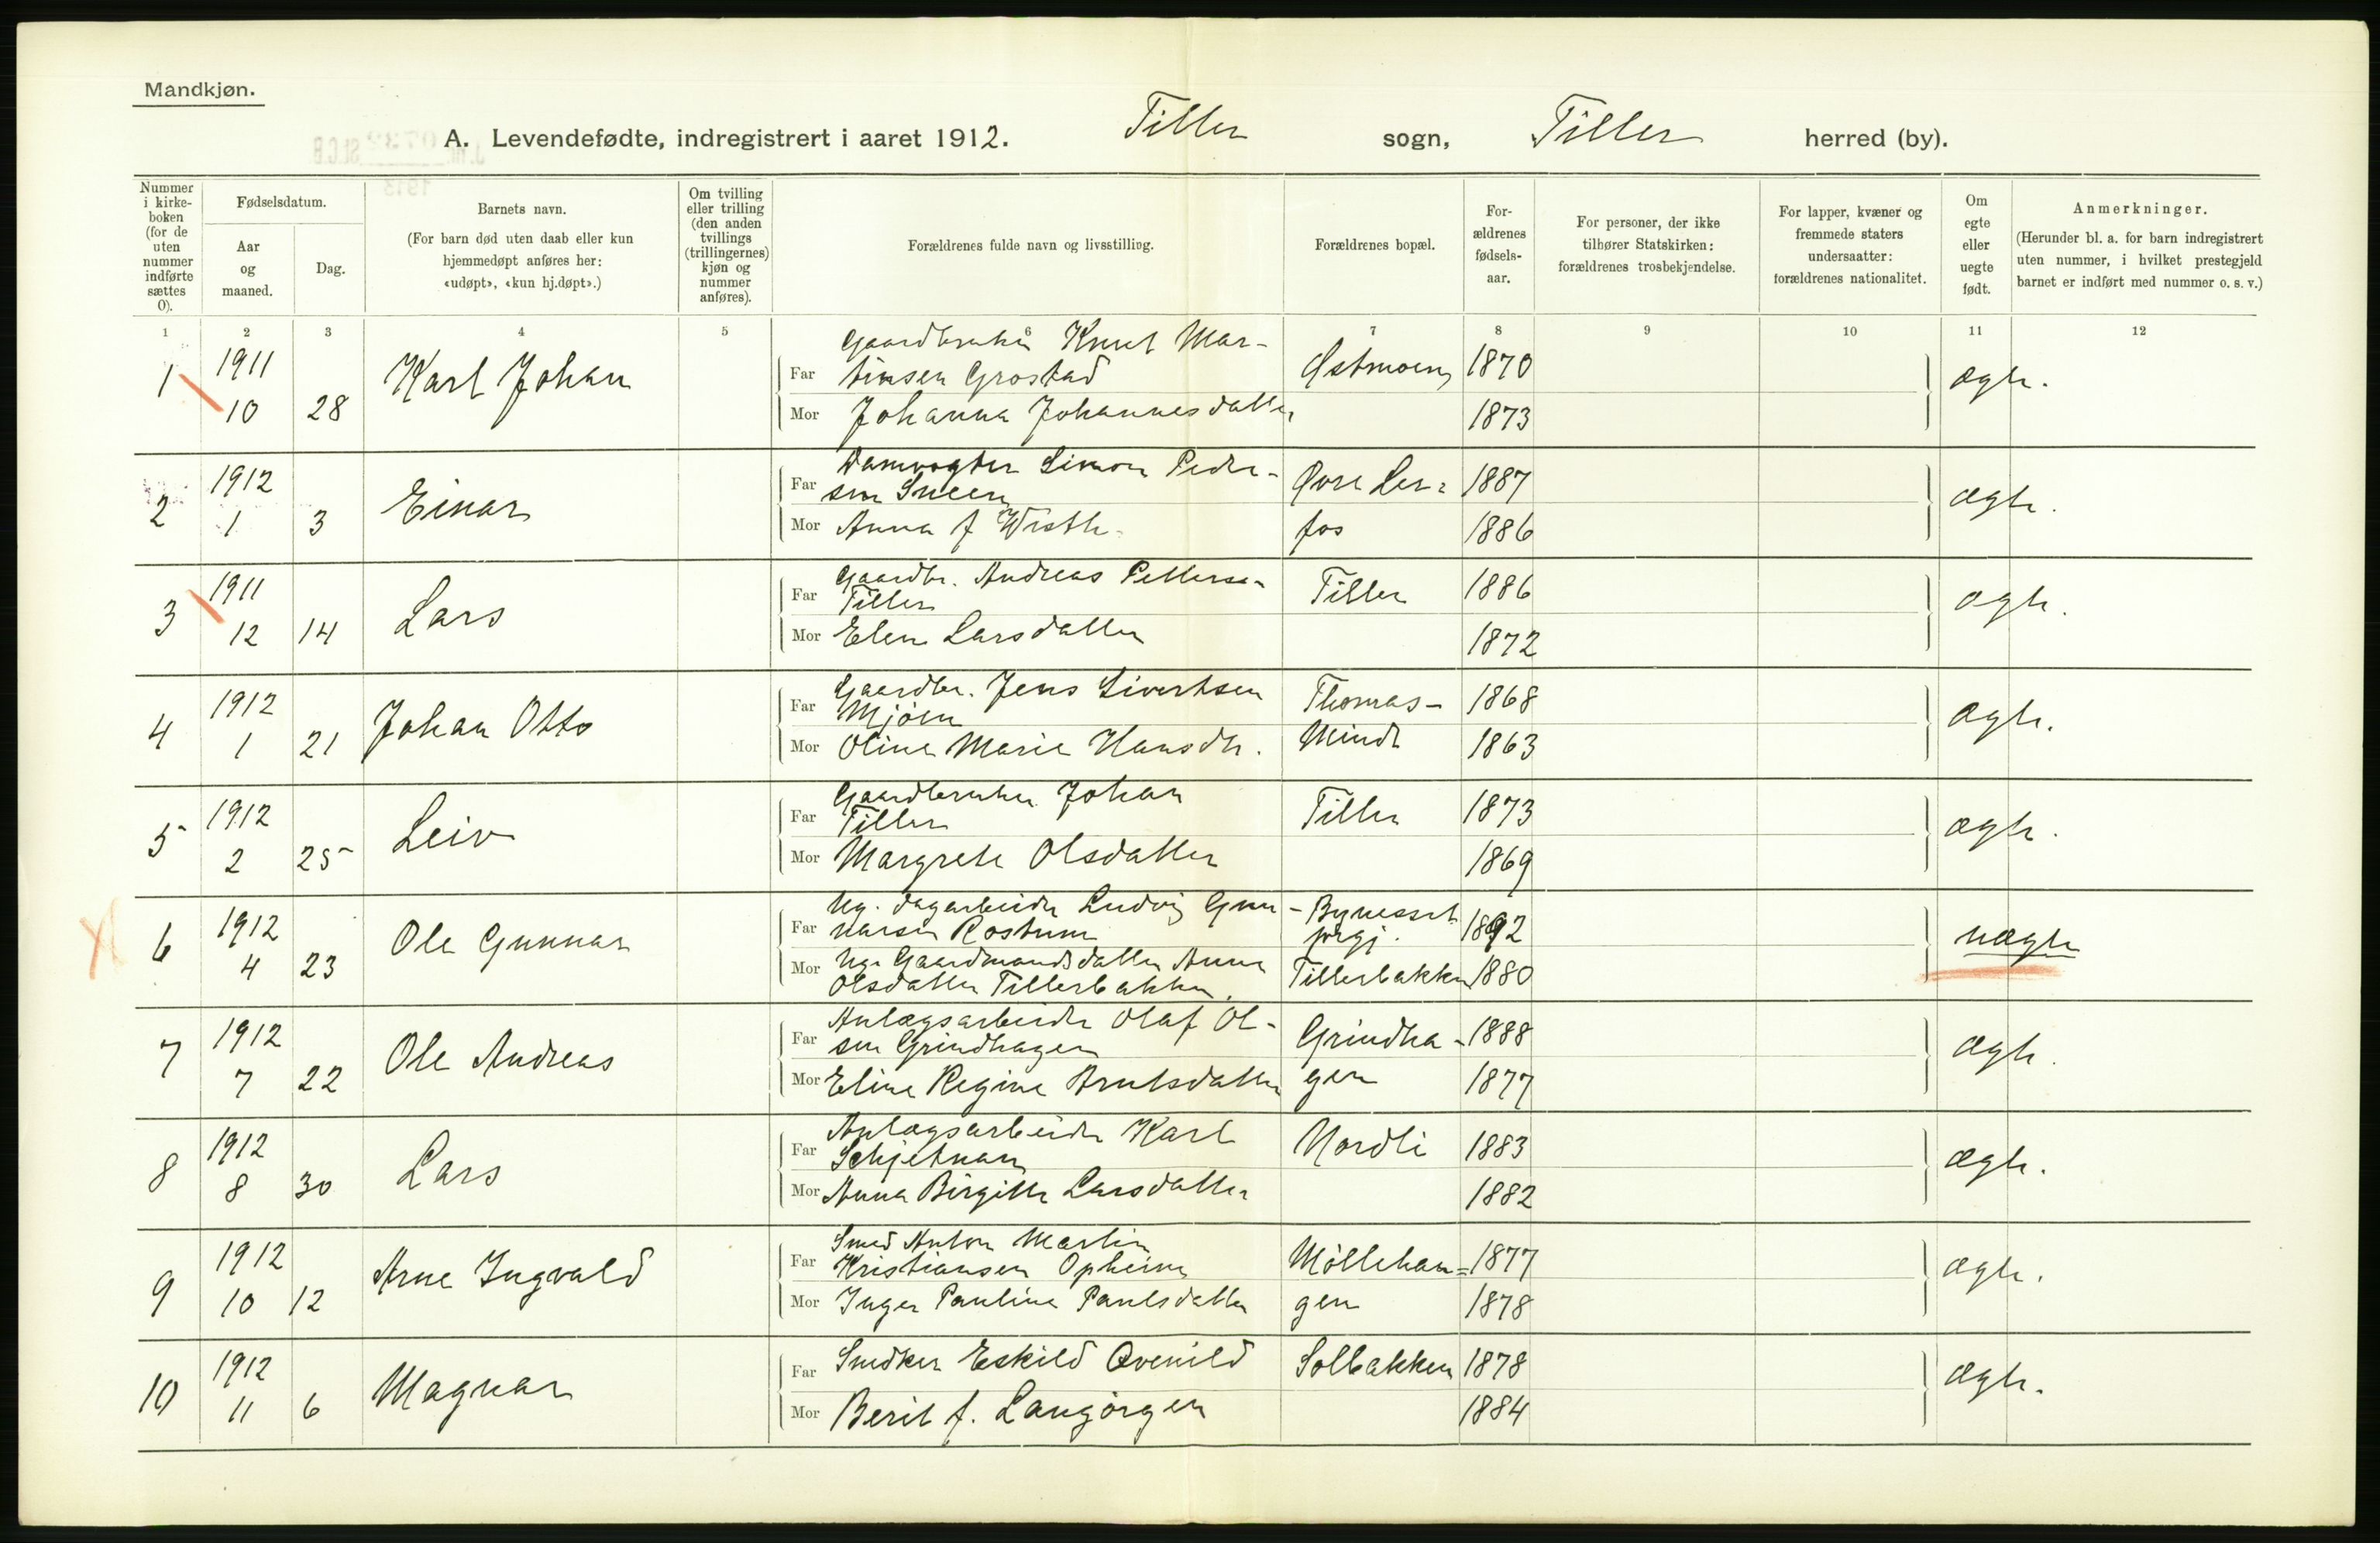 Mandkjøn.
A. Levendefødte, indregistrert i aaret 1912. Tiller sogn, Tiller herred (by).
Nummer i kirke-boken (for de uten nummer indførte sættes 0).
Fødselsdatum.
Aar og maaned.
Dag.
Barnets navn.
(For barn død uten daab eller kun hjemmedøpt anføres her: «udøpt», «kun hj.døpt».)
Om tvilling eller trilling (den anden tvillings (trillingernes) kjøn og nummer anføres).
Forældrenes fulde navn og livsstilling.
Forældrenes bopæl.
For-ældrenes fødsels-aar.
For personer, der ikke tilhører Statskirken: forældrenes trosbekjendelse.
For lapper, kvæner og fremmede staters undersaatter: forældrenes nationalitet.
Om egte eller uegte født.
Anmerkninger.
(Herunder bl. a. for barn indregistrert uten nummer, i hvilket prestegjeld barnet er indført med nummer o. s. v.)
1 2 3 4 5 6 7 8 9 10 11 12
1 1911 10 28 Karl Johan
Gaardbruker Knut Mar-
Far tinsen Grostad Østmoen 1870 ægte.
Mor Johanna Johannesdatter 1873
2 1912 1 3 Einar
Damvogter Simon Peder-
Far sen Sneen Øvre Ler- 1887 ægte.
Mor Anna f Wisth fos 1886
3 1911 12 14 Lars
Gaardbr. Andreas Petterse-
Far Tiller Tiller 1886 ægte.
Mor Elen Larsdatter 1872
4 1912 1 21 Johan Otto
Gaardbr. Jens Sivertsen
Far Mjöen Thomas- 1868 ægte.
Mor Oline Marie Hansdtr. Minde 1863
5 1912 2 25 Leiv
Gaardbruker Johan
Far Tiller Tiller 1873 ægte.
Mor Margrete Olsdatter 1869
6 1912 4 23 Ole Gunnar
Ug. dagarbeider Ludvig Gun-
Far narsen Rostum Bynesset prgj. 1892 uægte
Mor Ug. Gaardmandsdatter Anne
Olsdatter Tillerbakken. Tillerbakken 1880
7 1912 7 22 Ole Andreas
Anlægsarbeider Olaf Ol-
Far sen Grindhagen Grindha- 1888 ægte.
Mor Eline Regine Arntsdatter gen 1877
8 1912 8 30 Lars
Anlægsarbeider Karl
Far Schjetnan Nordli 1883 ægte.
Mor Anna Birgitte Larsdatter 1882
9 1912 10 12 Arne Ingvald
Smed Anton Martin
Far Kristiansen Opheim Möllehau= 1877 ægte.
Mor Inger Pauline Paulsdatter gen 1878
10 1912 11 6 Magnar
Far Snedker Eskild Qvenild Solbakken 1878 ægte.
Mor Berit f. Langörgen 1884